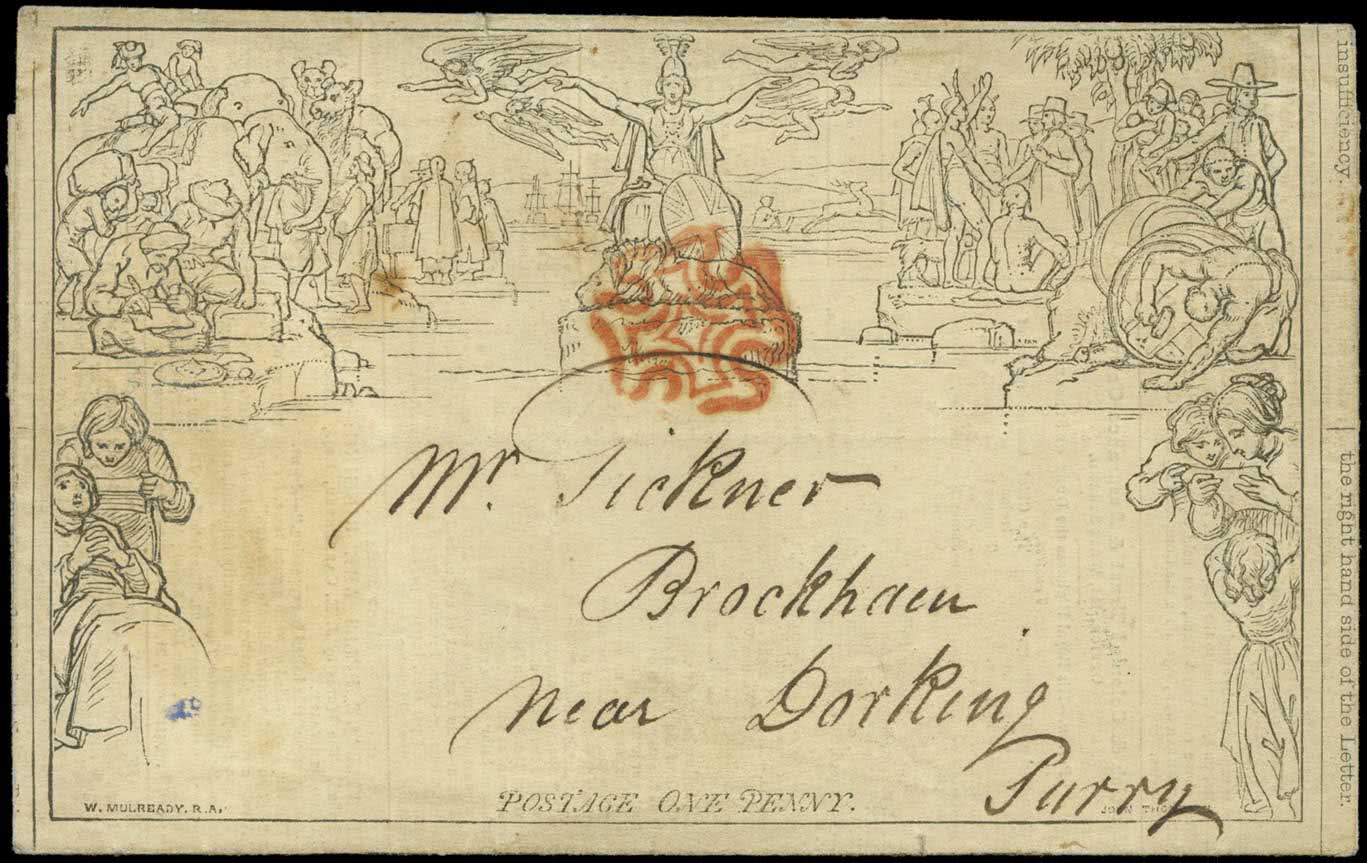 insufficiency.
the right hand side of the Letter.
Mr Tickner
Brockham
near Dorking
Surry
POSTAGE ONE PENNY.
W. MULREADY. R.A.
JOHN